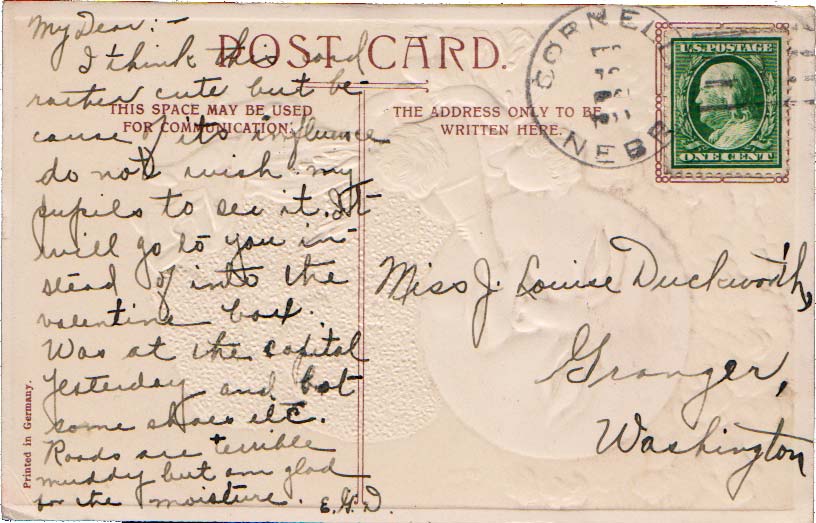 My Dear:-
POST CARD.
I think this card
rather cute but be-
THIS SPACE MAY BE USED
FOR COMMUNICATION.
cause of its influence
do not wish my
pupils to see it. It
will go to you in-
stead of into the
valentine box.
Was at the capital
yesterday and bot
some shoes etc.
Roads are terrible
muddy but am glad
for the moisture. E.H.D.
Printed in Germany.
THE ADDRESS ONLY TO BE
WRITTEN HERE.
CORNELL
NEBR
U.S. POSTAGE
ONE CENT
Miss J. Louise Duckworth,
Granger,
Washington